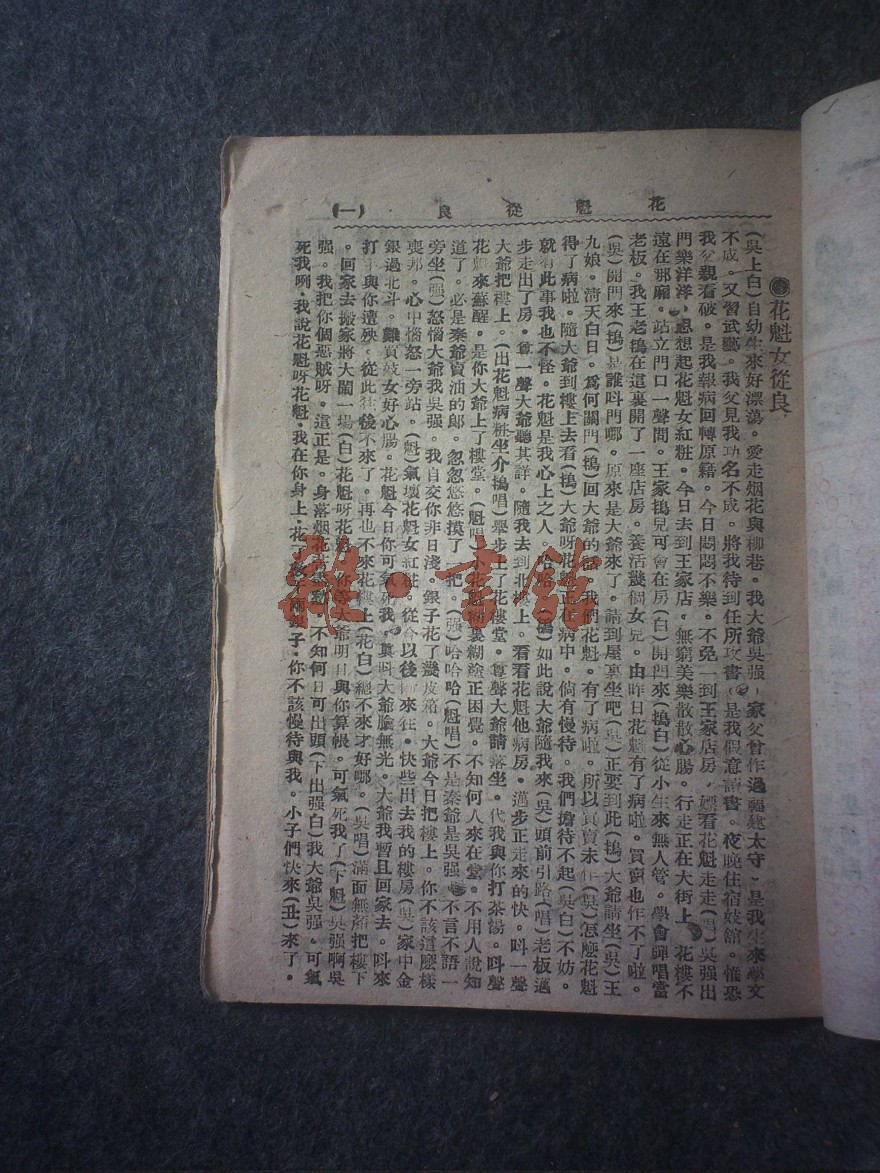 花魁從良 (一)
花魁女從良
(吳上白)自幼生來好漂蕩。愛走烟花與柳巷。我大爺吳强。家父曾作過福建太守。是我生來學文
不成。又習武藝。我父見我功名不成。將我待到任所攻書。是我假意讀書。夜晚住宿妓舘。惟恐
我父親看破。是我報病回轉原籍。今日悶悶不樂。不免一到王家店房。嫖看花魁走走(唱)吳强出
門樂洋洋。思想起花魁女紅粧。今日去到王家店。無窮美樂散散心腸。行走正在大街上。花樓不
遠在那廂。站立門口一聲問。王家搗兒可會在房(白)開門來(搗白)從小生來無人管。學會彈唱當
老板。我王老搗在這裏開了一座店房。養活幾個女兒。由昨日花魁有了病啦。買賣也作不了啦。
(吳)開門來(搗)是誰呌門哪。原來是大爺來了。請到屋裏坐吧(吳)正要到此(搗)大爺請坐(吳)王
九娘。淸天白日。爲何關門(搗)回大爺的 我們花魁。有了病啦。所以買賣未作(吳)怎麽花魁
得了病啦。隨大爺到樓上去看(搗)大爺呀花魁正在病中。倘有慢待。我們擔待不起(吳白)不妨。
就有此事我也不怪。花魁是我心上之人。哈哈(搗)如此說大爺隨我來(吳)頭前引路(唱)老板邁
步走出了房。尊一聲大爺聽其詳。隨我去到北樓上。看看花魁他病房。邁步正走來的快。呌一聲
大爺把樓上。(出花魁病粧坐介搗唱)舉步上了花樓堂。尊聲大爺請落坐。代我與你打茶湯。呌聲
花魁來蘇醒。是你大爺上了樓堂。(魁唱)小花魁 裏糊塗正困覺。不知何人來在堂。不用人說知
道了。必是秦爺賣油的郎。忽忽悠悠摸了一把。(强)哈哈哈(魁唱)不是秦爺是吳强。不言不語一
旁坐(强)怒惱大爺我吳强。我自交你非日淺。銀子花了幾皮箱。大爺今日把樓上。你不該這麽樣
喪邦。心中惱怒一旁站。(魁)氣壞花魁女紅粧。從今以後 來狂。快些出去我的樓房(吳)家中金
銀過北斗。難買妓女好心腸。花魁今日你可氣死我。眞呌大爺臉無光。大爺我暫且回家去。呌來
打手與你遭殃。從此往後不來了。再也不來花樓上(花白)總不來才好哪。(吳唱)滿面無顏把樓下
。回家去搬家將大鬧一場(白)花魁呀花魁。你等大爺明日與你算帳。可氣死我了(下魁)吳强啊吳
强。我把你個惡賊呀。這正是。身落烟花 不知何日可出頭(下出强白)我大爺吳强。可氣
死我咧。我說花魁呀花魁。我在你身上。花了 銀子。你不該慢待與我。小子們快來(丑)來了。
雜·書館